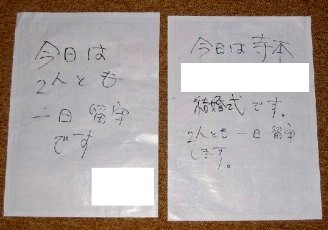 今日は
2人とも
一日 留守
です
今日は寺本
結婚式です。
2人とも 一日 留守
します。